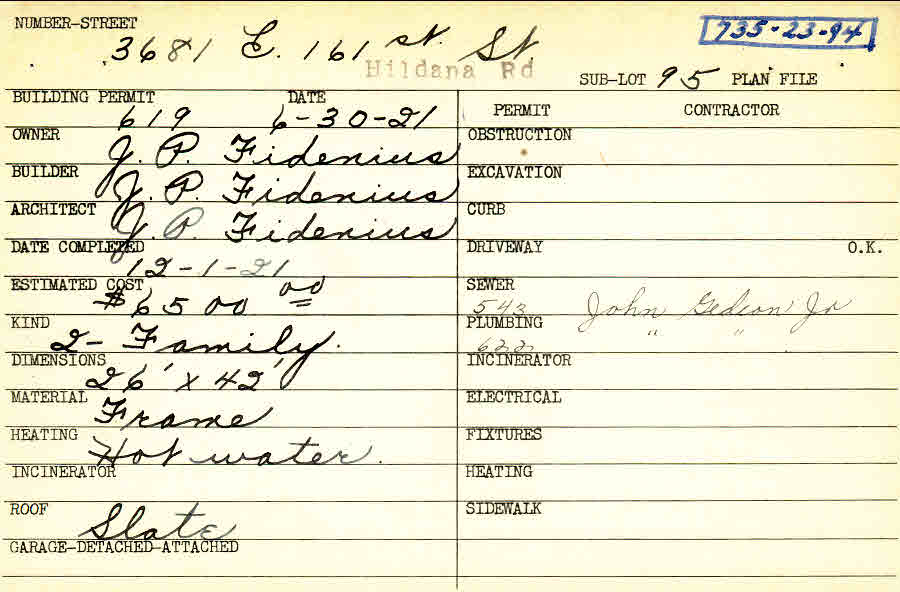 NUMBER-STREET
3681 E. 161 st. St.
735-23-94
Hildana Rd
SUB-LOT 95 PLAN FILE
BUILDING PERMIT DATE
619 6-30-21
OWNER
J. P. Fidenius
BUILDER
J. P. Fidenius
ARCHITECT
J. P. Fidenius
DATE COMPLETED
12-1-21
ESTIMATED COST
$6500 00
KIND
2-Family.
DIMENSIONS
26' x 42'
MATERIAL
Frame
HEATING
Hot water.
INCINERATOR
ROOF
Slate
GARAGE-DETACHED-ATTACHED
PERMIT CONTRACTOR
OBSTRUCTION
EXCAVATION
CURB
DRIVEWAY O.K.
SEWER
543 John Gedeon Jr
PLUMBING " "
622
INCINERATOR
ELECTRICAL
FIXTURES
HEATING
SIDEWALK